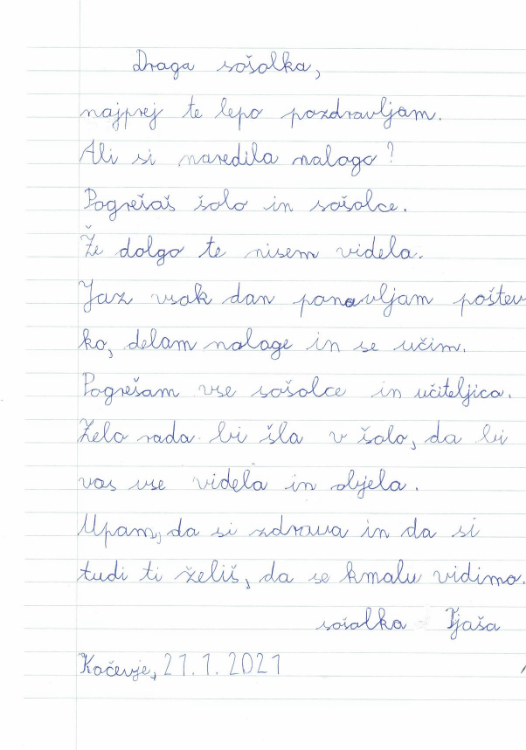 Draga sošolka,
najprej te lepo pozdravljam.
Ali si naredila nalogo?
Pogrešaš šolo in sošolce.
Že dolgo te nisem videla.
Jaz vsak dan ponavljam poštev
ko, delam naloge in se učim.
Pogrešam vse sošolce in učiteljica.
Zelo rada bi šla v šolo, da bi
vas vse videla in objela.
Upam, da si zdrava in da si
tudi ti želiš, da se kmalu vidimo.
sošolka Tjaša
Kočevje, 21. 1. 2021